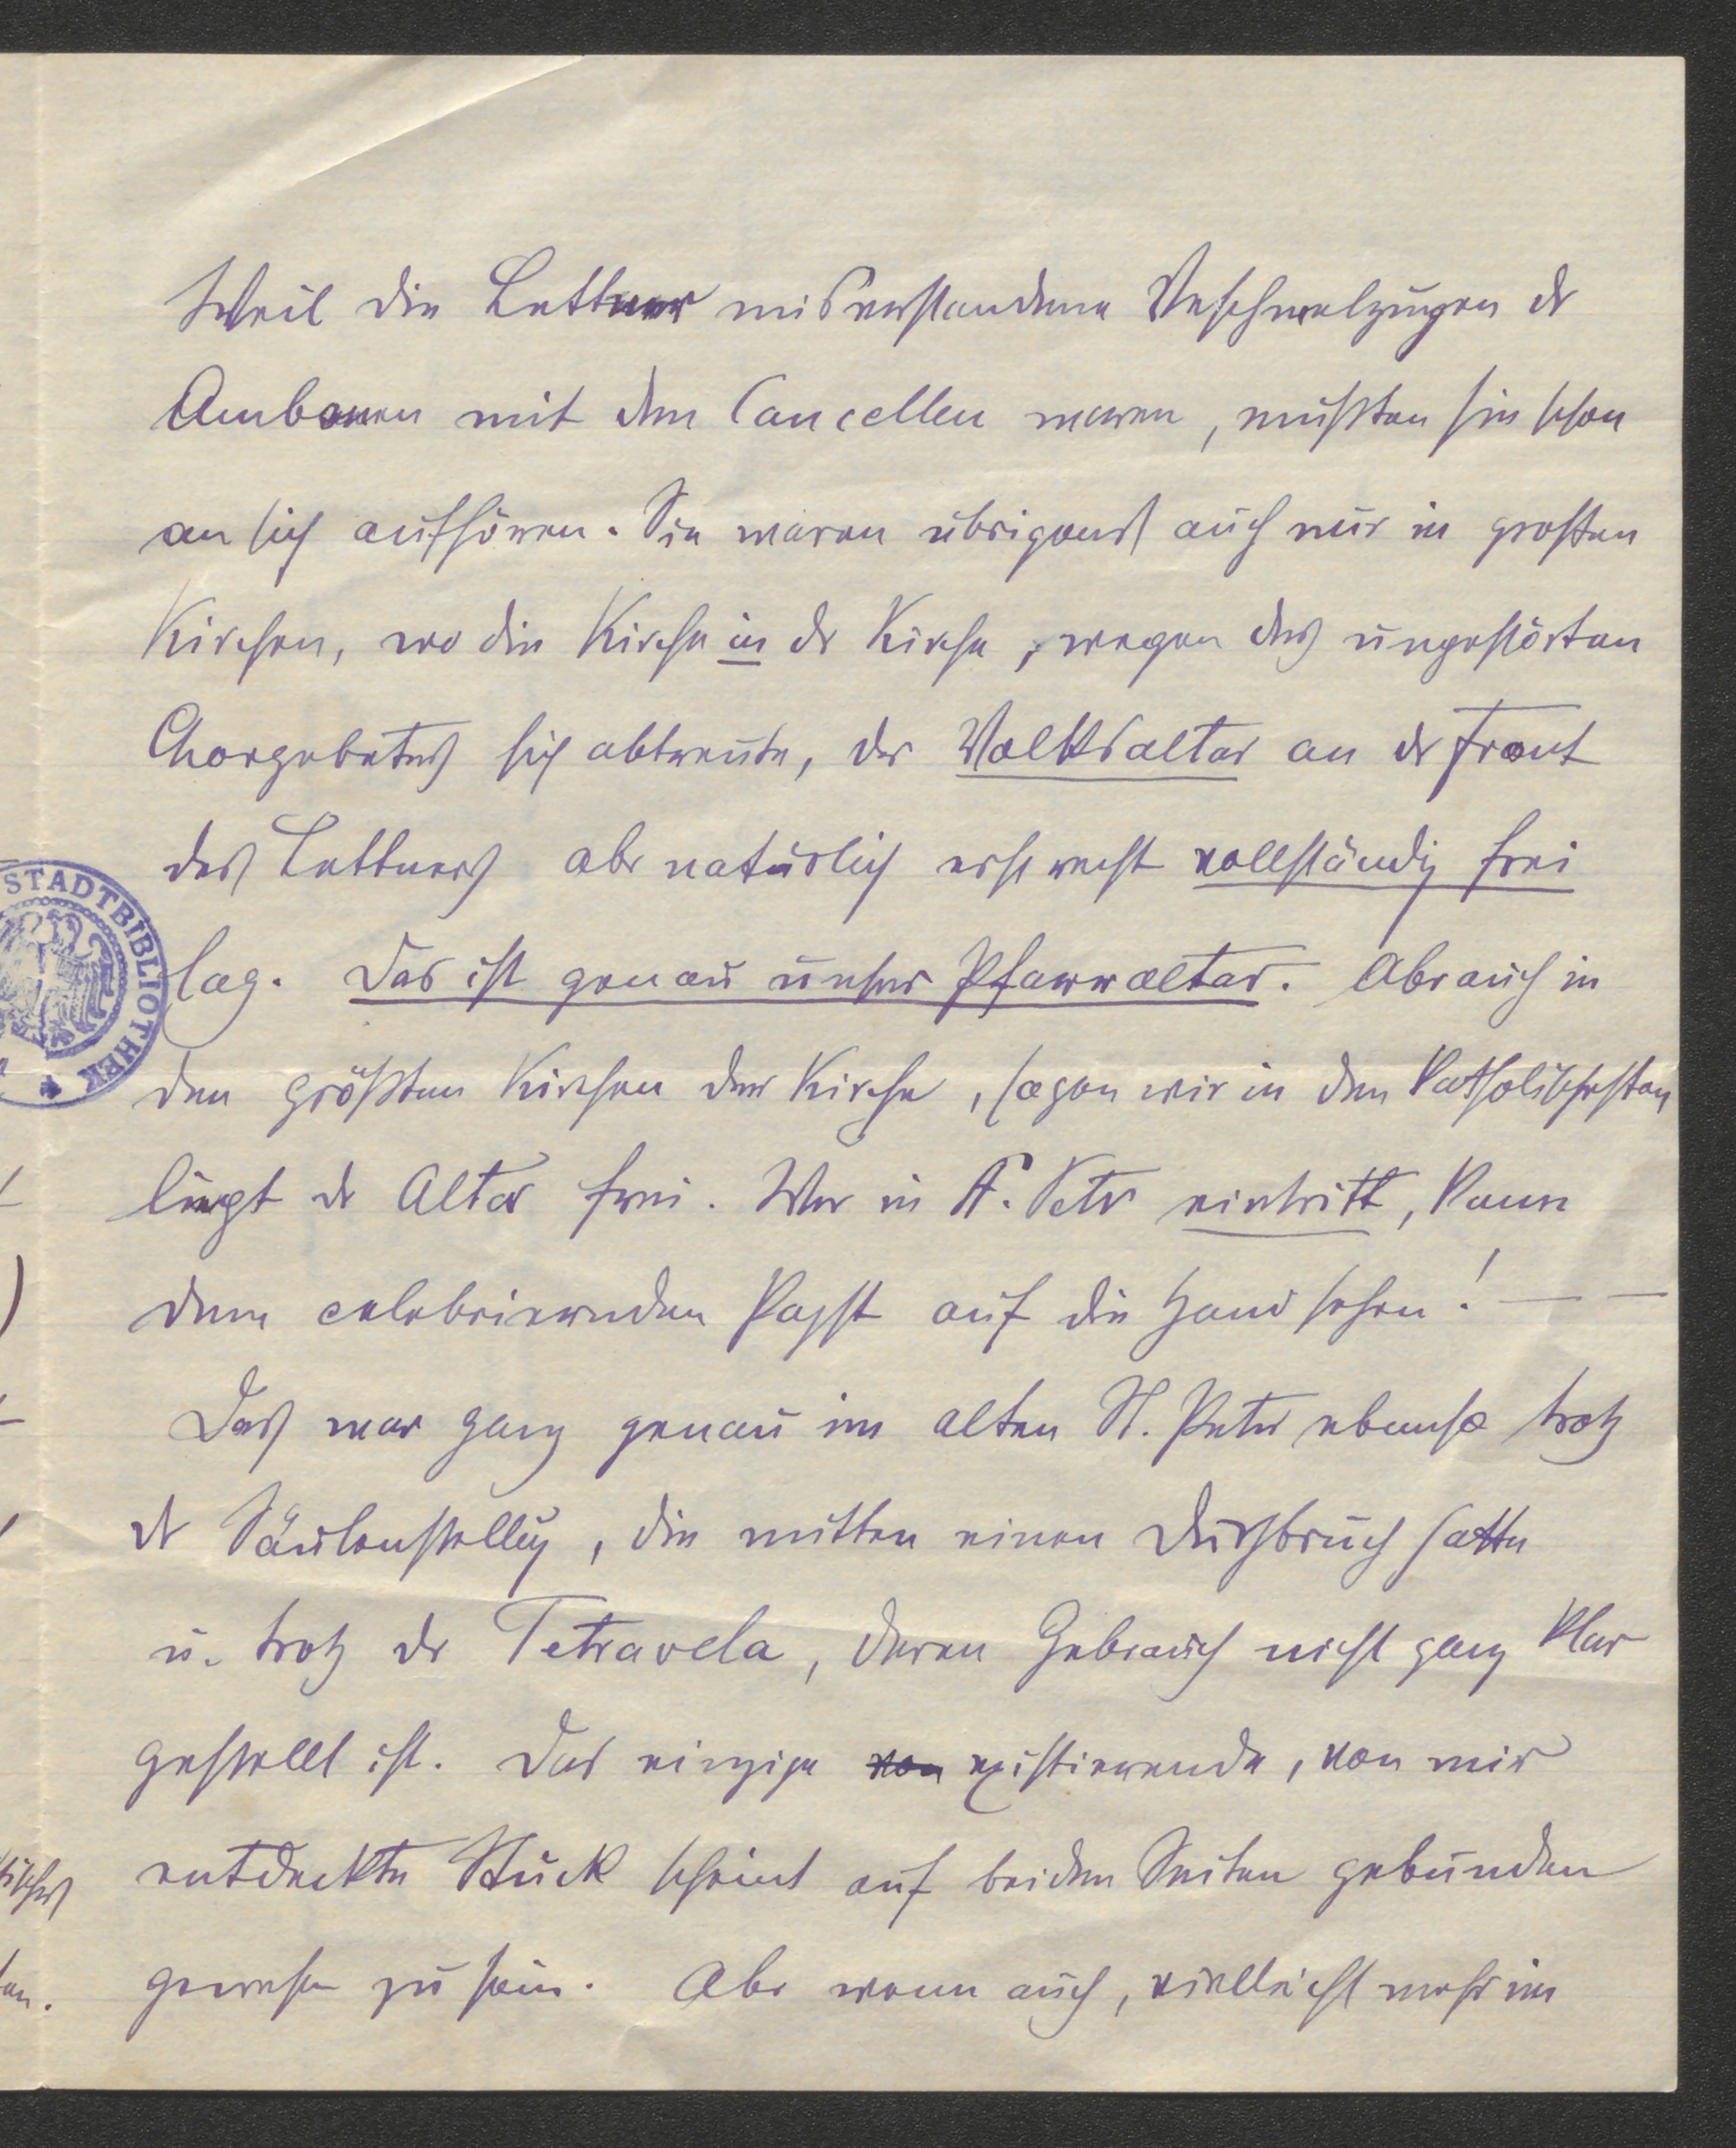 Weil die Lettner misverstandene Verschmelzungen der
Ambonen mit den Cancellen waren, mußten sie schon
an sich aufhören. Sie waren übrigens auch nur in großen
Kirchen, wo die Kirche in der Kirche, wegen des ungestörten
Chorgebetes sich abtrennte, der Volksaltar an der Front
des Lettners aber natürlich erst recht vollständig frei
lag. Das ist genau unser Pfarraltar. Aber auch in
den größten Kirchen der Kirche, sagen wir in den katholischsten
liegt der Altar frei. Wer in St. Peter eintritt, kann
dem celebrierenden Papst auf die Hand sehen! — —
Das war ganz genau im alten St. Peter ebenso trotz
der Säulenstellung, die mitten einen Durchbruch hatte
u. trotz der Tetravela, deren Gebrauch nicht ganz klar
gestellt ist. Das einzige von existierende, von mir
entdeckte Stück scheint auf beiden Seiten gebunden
gewesen zu sein. Aber wenn auch, vielleicht mehr im
STADTBIBLIOTHEK